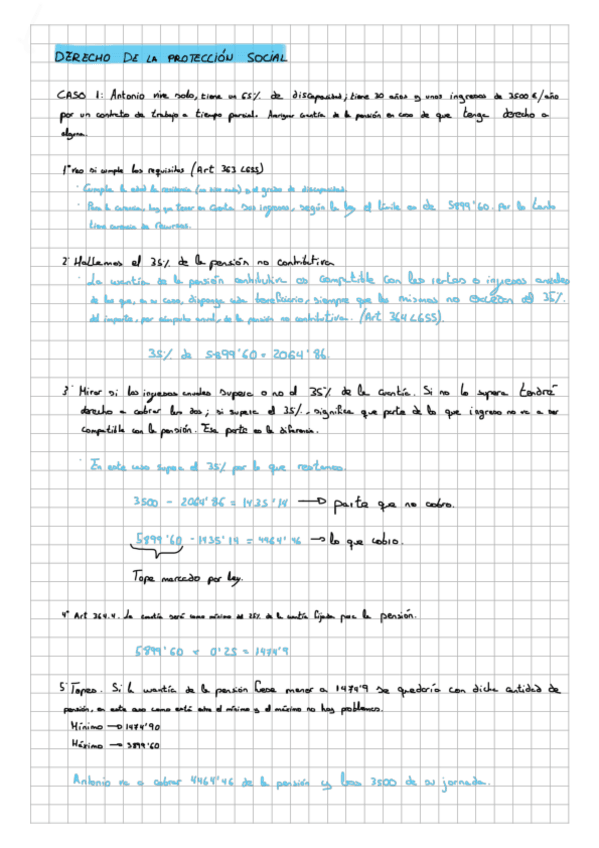 DERECHO DE LA PROTECCIÓN SOCIAL
CASO 1: Antonio vive solo, tiene un 65% de discapacidad, tiene 30 años y unos ingresos de 3500 €/año
por un contrato de trabajo a tiempo parcial. Averiguar cuantía de la pensión en caso de que tenga derecho a
alguna.
1º Veo si cumple los requisitos (Art 363 LGSS)
· Cumple la edad, la residencia y el grado de discapacidad.
· Para la carencia, hay que tener en cuenta sus ingresos, según la ley el límite es de 5899'60. Por lo tanto
tiene carencia de recursos.
2º Hallamos el 35% de la pensión no contributiva
· La cuantía de la pensión contributiva es compatible con las rentas o ingresos anuales
de los que, en su caso, disponga cada beneficiario, siempre que los mismos no excedan del 35%
del importe, por cómputo anual, de la pensión no contributiva. (Art 364 LGSS).
35% de 5899'60 = 2064'86.
3º Mirar si los ingresos anuales supera o no el 35% de la cuantía. Si no lo supera tendrá
derecho a cobrar las dos; si supera el 35%, significa que parte de lo que ingreso no va a ser
compatible con la pensión. Esa parte es la diferencia.
· En este caso supera el 35% por lo que restamos.
3500 - 2064'86 = 1435'14 → parte que no cobro.
5899'60 - 1435'14 = 4464'46 → lo que cobro.
Tope marcado por ley.
4º Art 364.4. La cuantía será como mínimo del 25% de la cuantía fijada para la pensión.
5899'60 x 0'25 = 1474'9
5º Topes. Si la cuantía de la pensión fuese menor a 1474'9 se quedaría con dicha cantidad de
pensión, en este caso como está entre el mínimo y el máximo no hay problemas.
Mínimo → 1474'90
Máximo → 5899'60
Antonio va a cobrar 4464'46 de la pensión y los 3500 de su jornada.